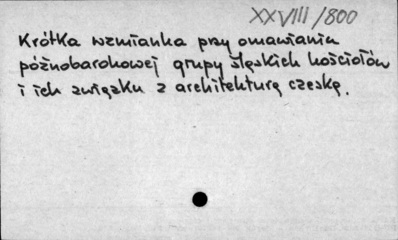 XXVIII/800
Krótka wzmianka przy omawianiu
późnobarokowej grupy śląskich kościołów
i ich związku z architekturą czeską.